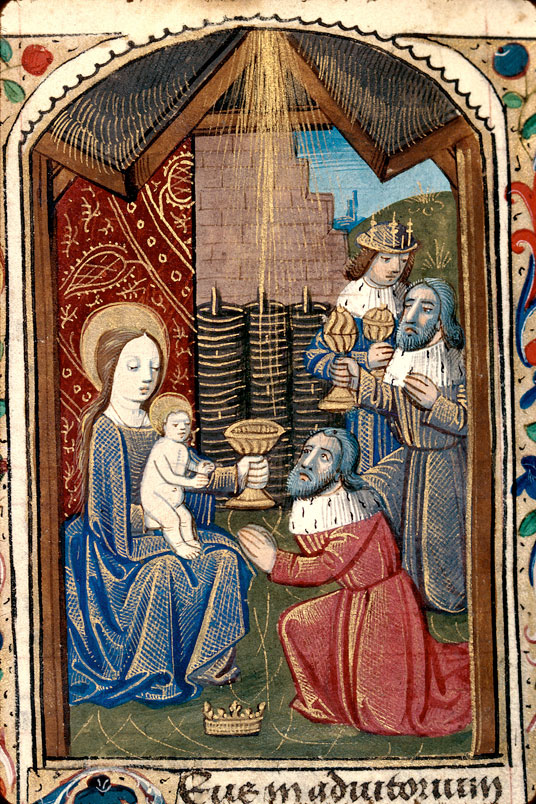 Eus in adiutorium